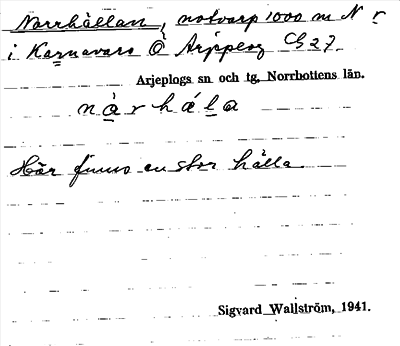 Norrhällan, notvarp 1000 m N r
i Karnavars Ö Arjeplog Cb 27.
Arjeplogs sn och tg, Norrbottens län.
nàrhála
Här finns en stor hälla
Sigvard Wallström, 1941.